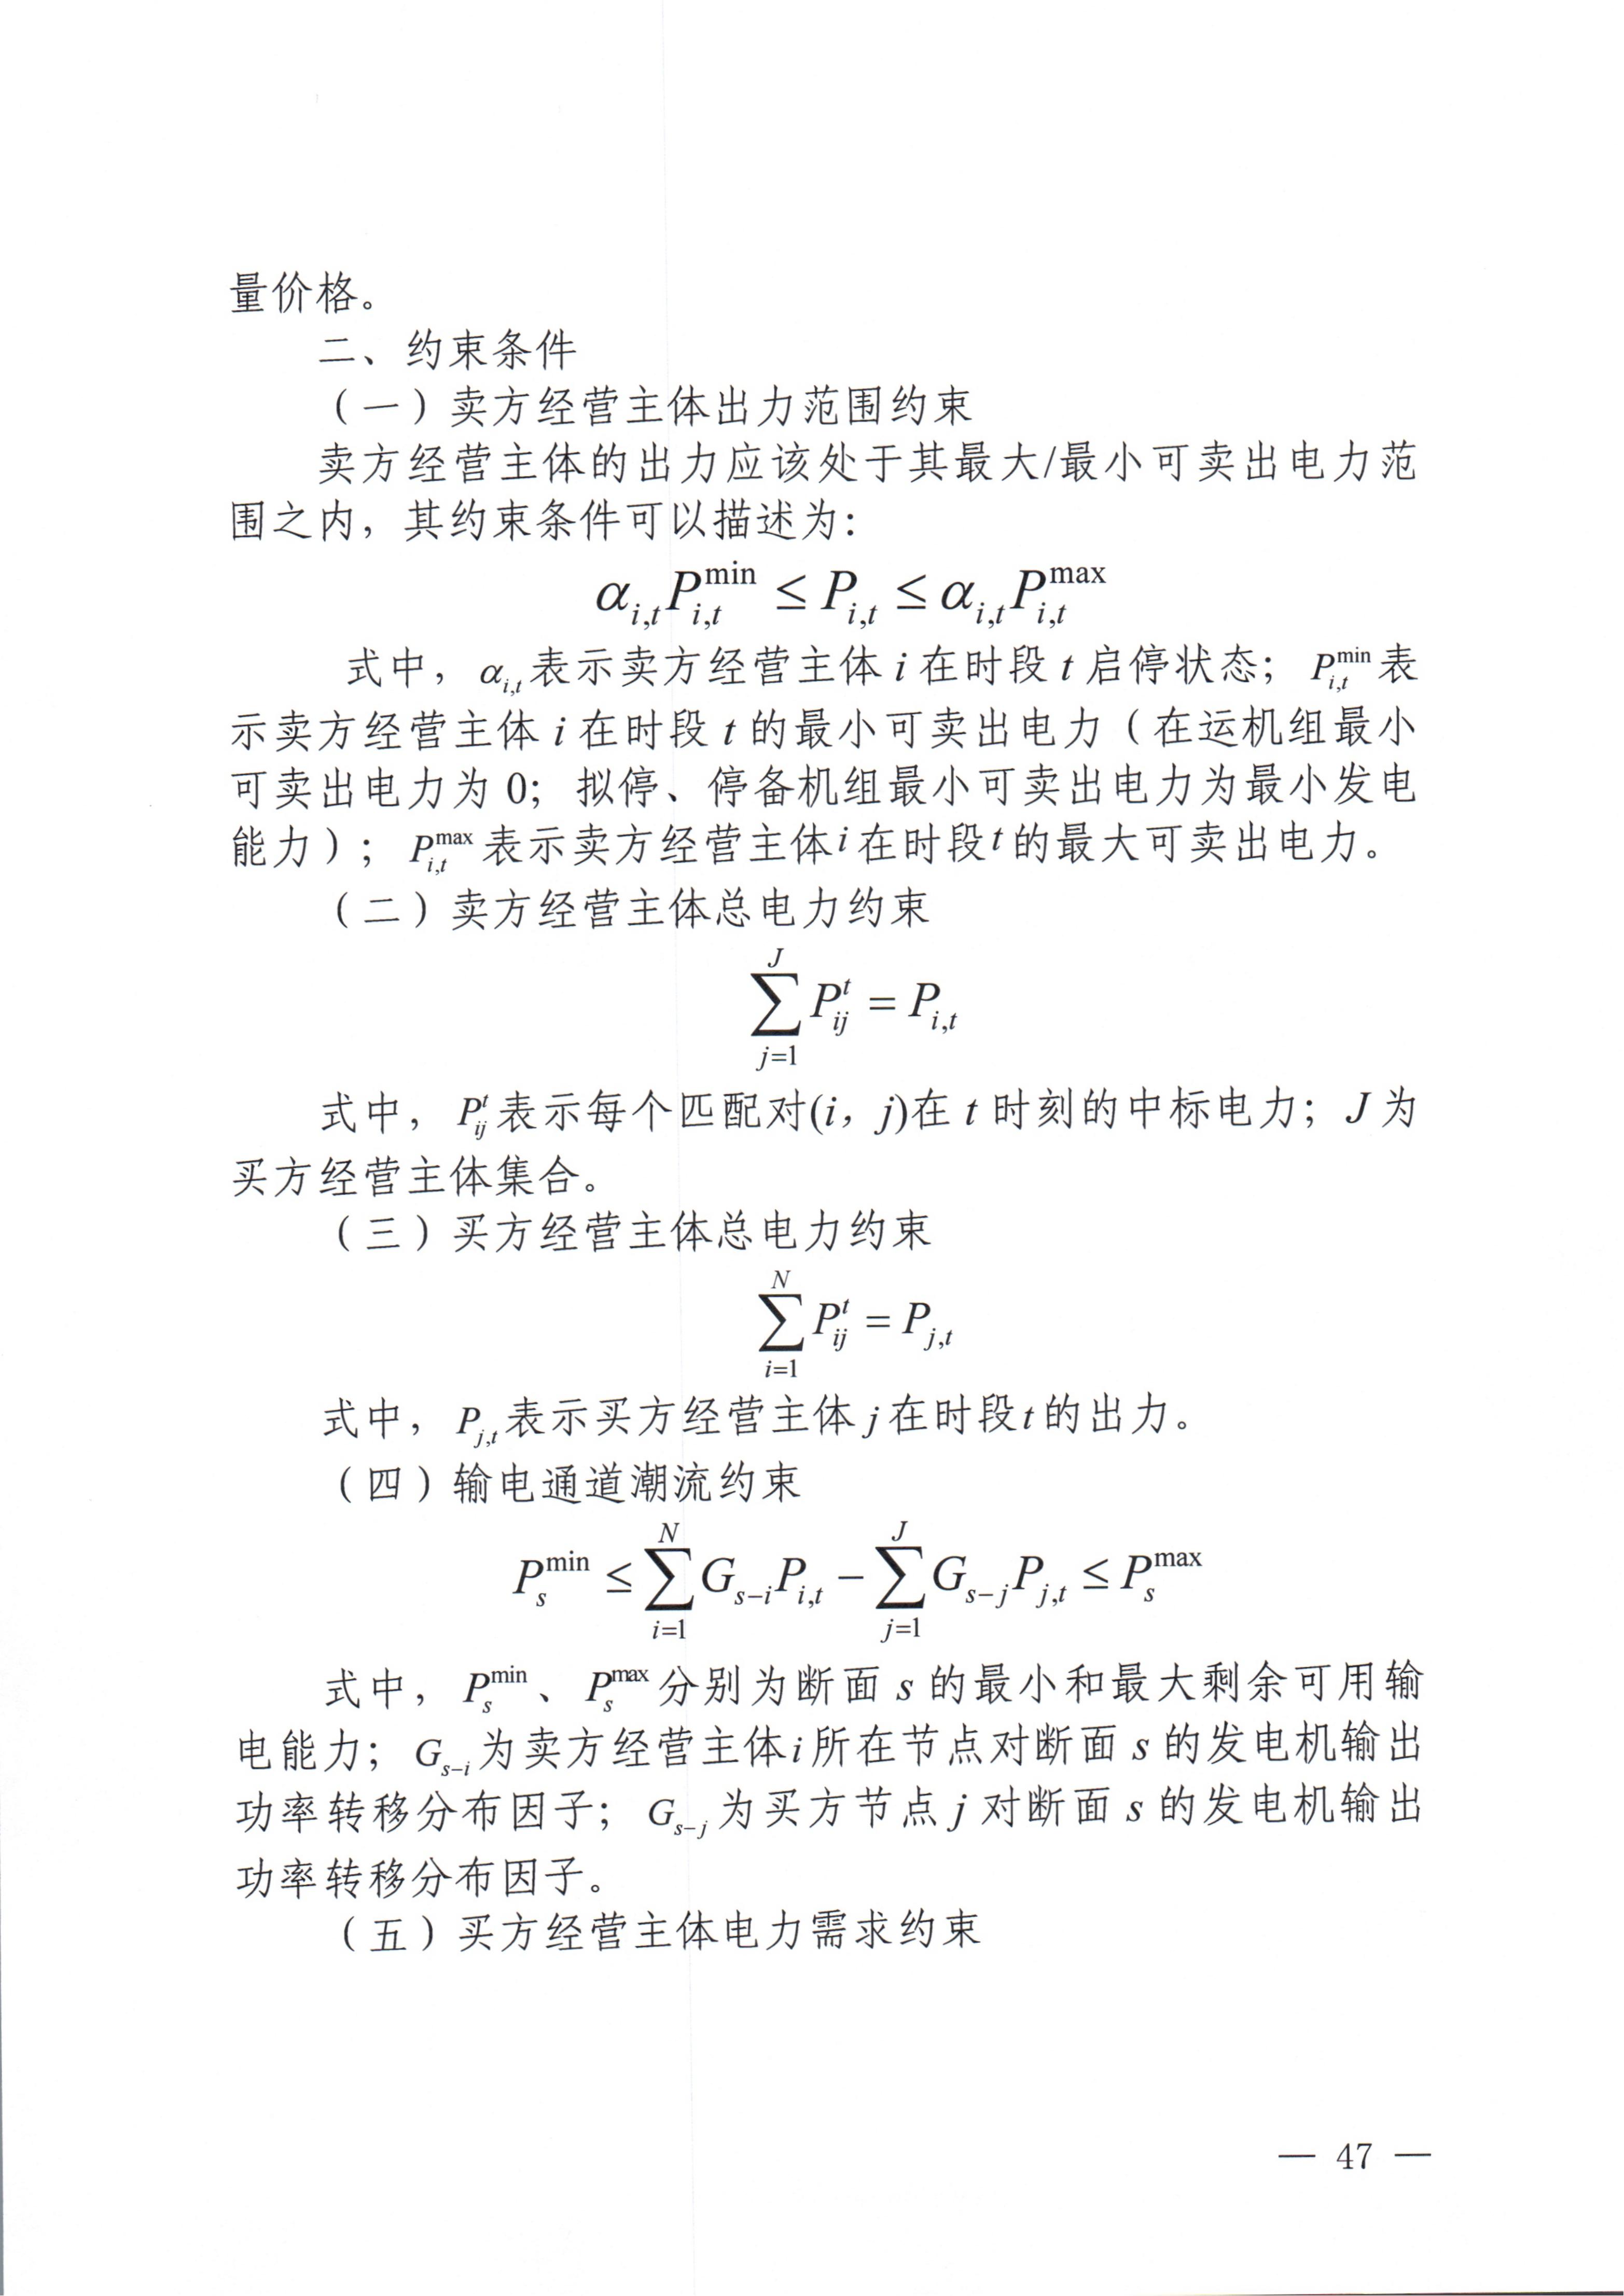 量价格。
二、约束条件
（一）卖方经营主体出力范围约束
卖方经营主体的出力应该处于其最大/最小可卖出电力范
围之内，其约束条件可以描述为：
$\alpha_{i,t}P_{i,t}^{\min} \leq P_{i,t} \leq \alpha_{i,t}P_{i,t}^{\max}$
式中，$\alpha_{i,t}$表示卖方经营主体 $i$ 在时段 $t$ 启停状态；$P_{i,t}^{\min}$表
示卖方经营主体 $i$ 在时段 $t$ 的最小可卖出电力（在运机组最小
可卖出电力为 0；拟停、停备机组最小可卖出电力为最小发电
能力）；$P_{i,t}^{\max}$表示卖方经营主体$i$在时段$t$的最大可卖出电力。
（二）卖方经营主体总电力约束
$\sum_{j=1}^{J} P_{ij}^{t} = P_{i,t}$
式中，$P_{ij}^{t}$表示每个匹配对($i$，$j$)在 $t$ 时刻的中标电力；$J$ 为
买方经营主体集合。
（三）买方经营主体总电力约束
$\sum_{i=1}^{N} P_{ij}^{t} = P_{j,t}$
式中，$P_{j,t}$表示买方经营主体$j$在时段$t$的出力。
（四）输电通道潮流约束
$P_{s}^{\min} \leq \sum_{i=1}^{N} G_{s-i}P_{i,t} - \sum_{j=1}^{J} G_{s-j}P_{j,t} \leq P_{s}^{\max}$
式中，$P_{s}^{\min}$、$P_{s}^{\max}$分别为断面 $s$ 的最小和最大剩余可用输
电能力；$G_{s-i}$为卖方经营主体$i$所在节点对断面 $s$ 的发电机输出
功率转移分布因子；$G_{s-j}$为买方节点 $j$ 对断面 $s$ 的发电机输出
功率转移分布因子。
（五）买方经营主体电力需求约束
— 47 —